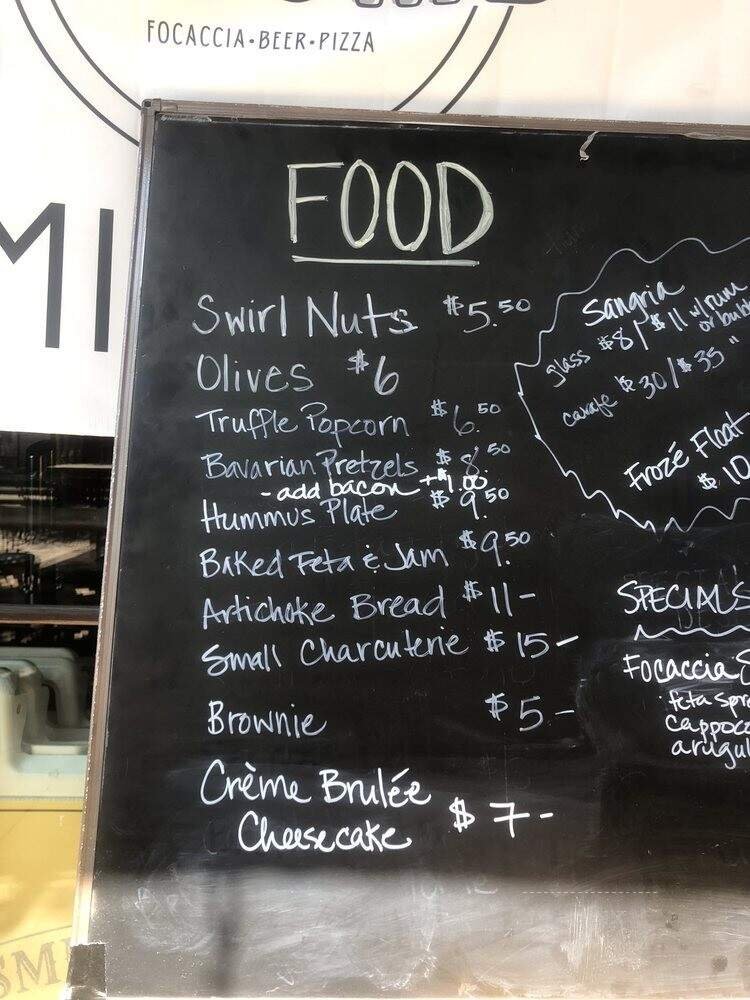 FOCACCIA•BEER•PIZZA
MI
FOOD
Swirl Nuts $5.50
Olives $6
Truffle Popcorn $6.50
Bavarian Pretzels $8.50
- add bacon +$1.00
Hummus Plate $9.50
Baked Feta & Jam $9.50
Artichoke Bread $11-
Small Charcuterie $15-
Brownie $5-
Crème Brulée
Cheesecake $7-
Sangria
glass $8/$11 w/rum
or bub
carafe $30/$35 "
Frozé Float
$10
SPECIALS
Focaccia
feta spr
cappoc
arugul
SM